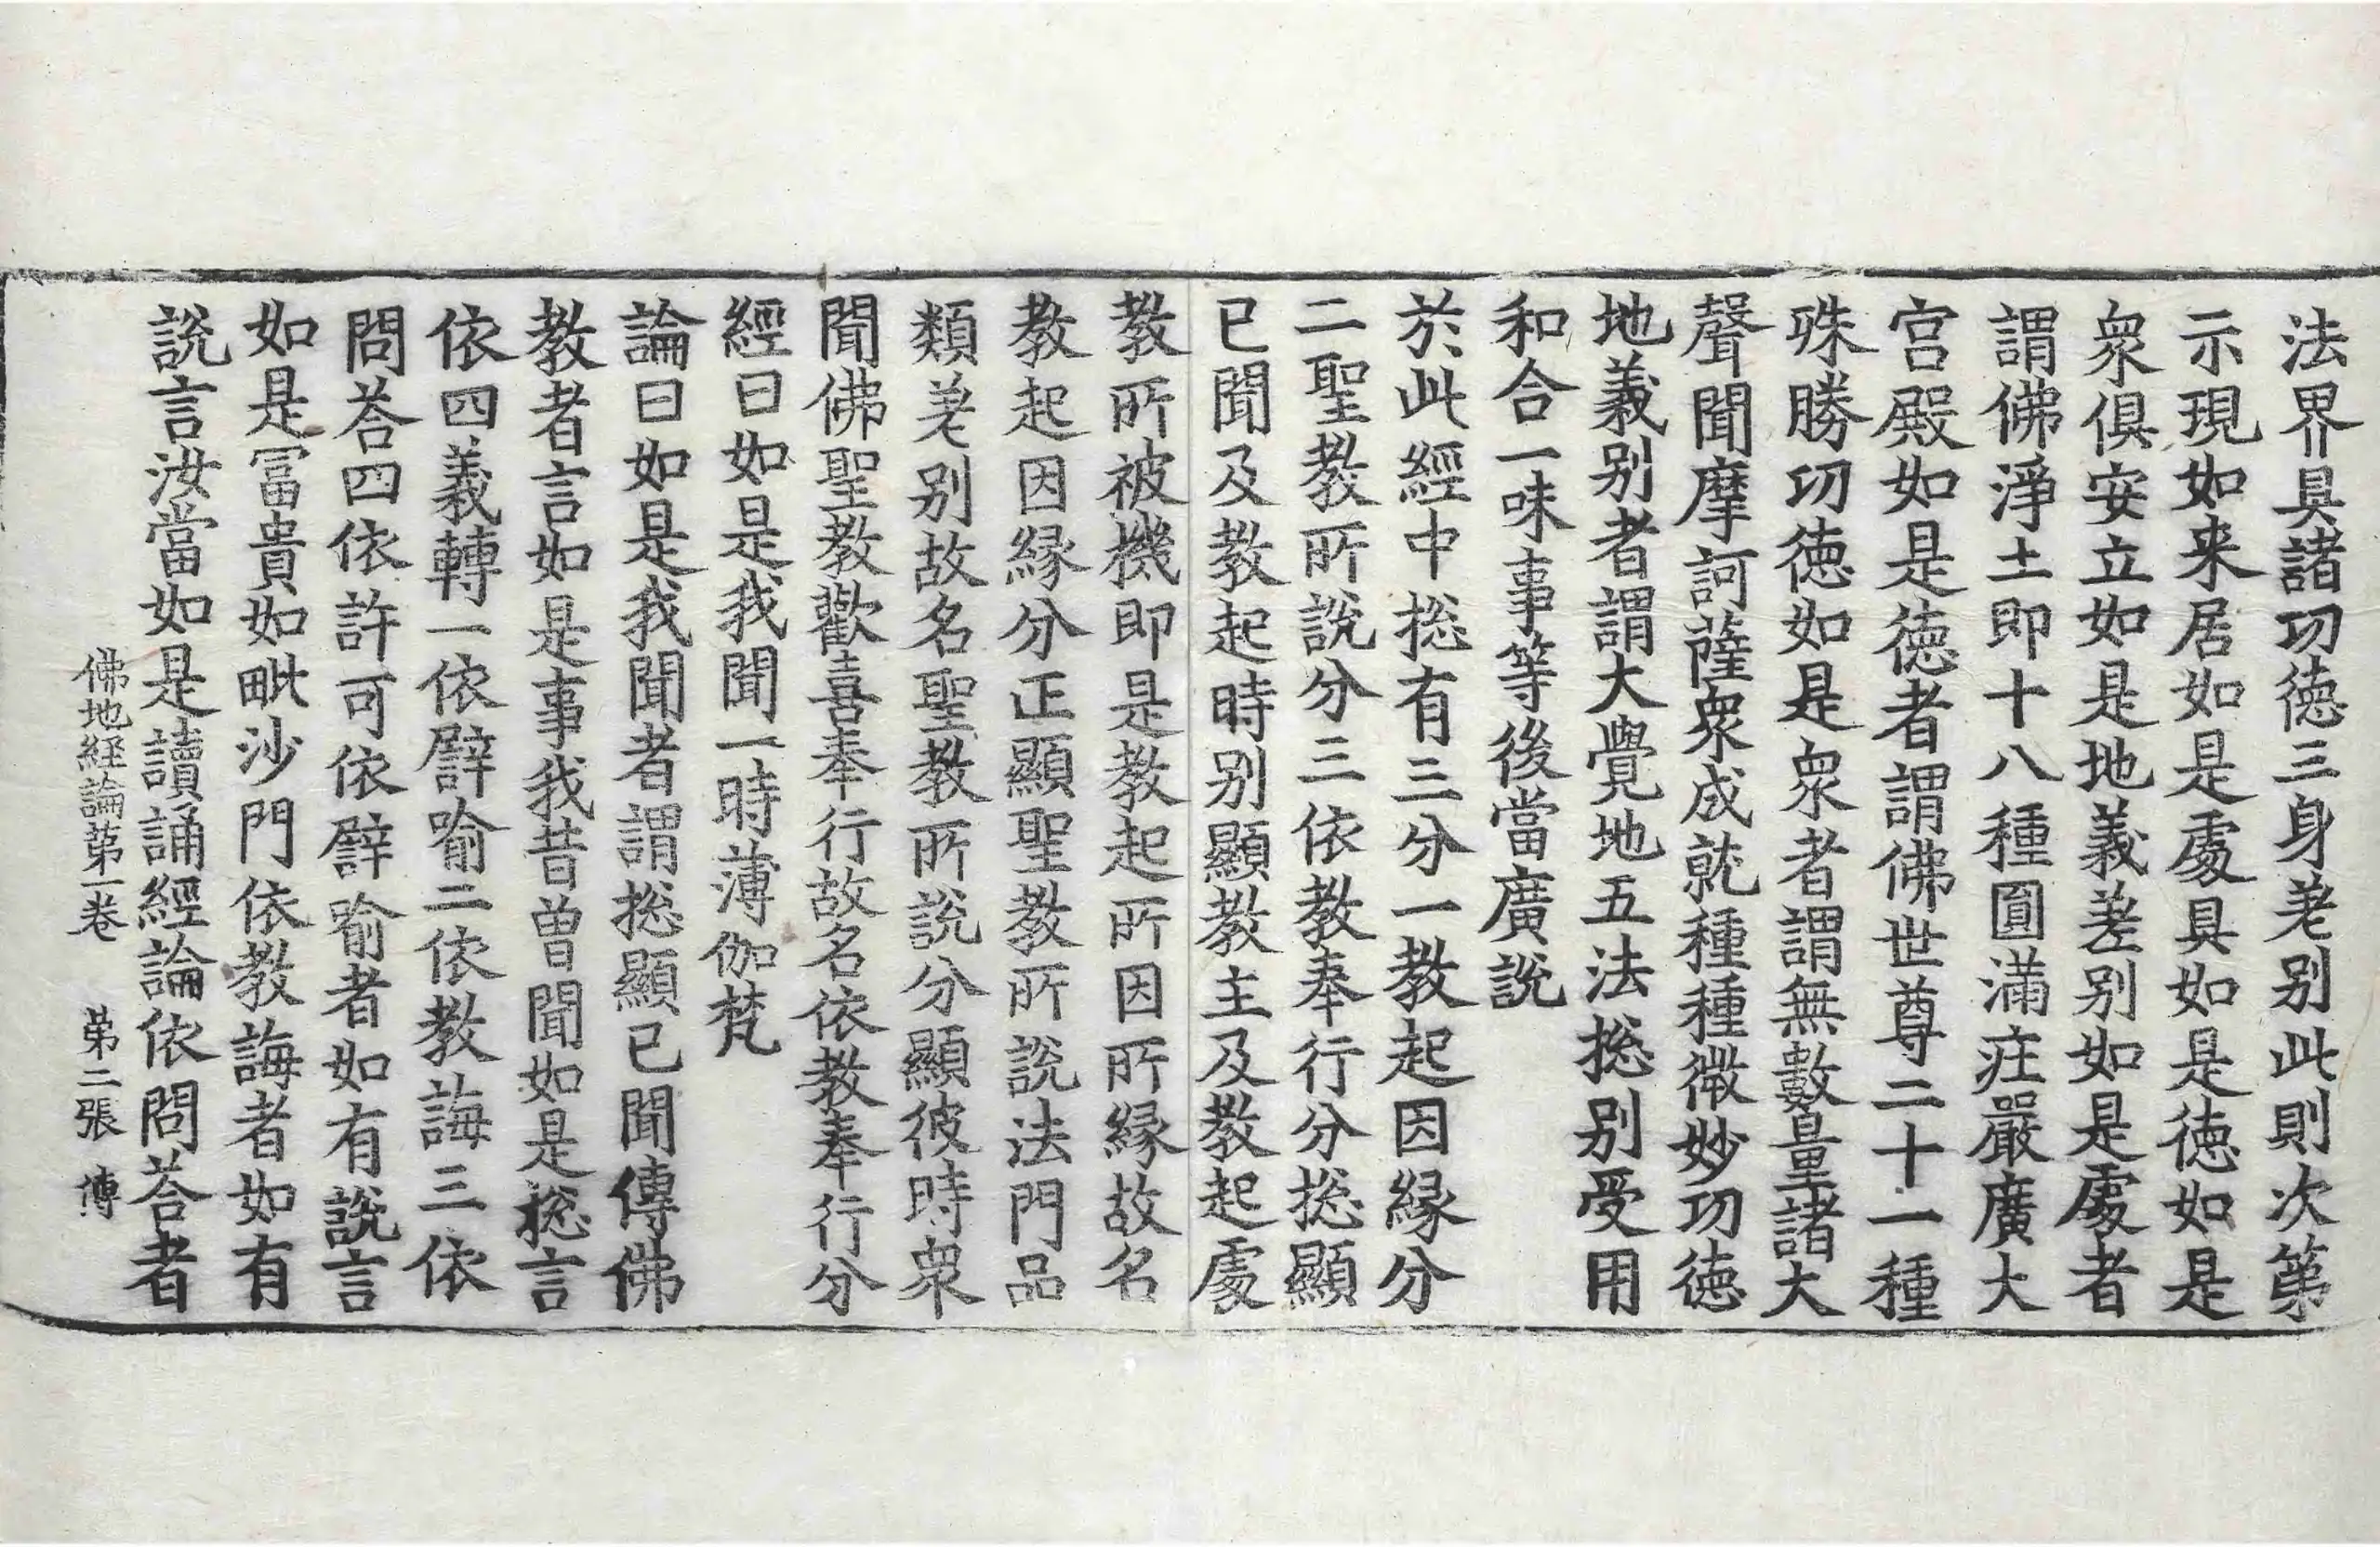 法界具諸功徳三身差别此則次第
示現如来居如是處具如是徳如是
衆俱安立如是地義差别如是處者
謂佛淨土即十八種圓滿莊嚴廣大
宫殿如是徳者謂佛世尊二十一種
殊勝功徳如是衆者謂無數量諸大
聲聞摩訶薩衆成就種種微妙功徳
地義别者謂大覺地五法捴别受用
和合一味事等後當廣說
於此經中捴有三分一教起因縁分
二聖教所說分三依教奉行分捴顯
已聞及教起時别顯教主及教起處
教所被機即是教起所因所縁故名
教起因縁分正顯聖教所說法門品
類差别故名聖教所說分顯彼時衆
聞佛聖教歡喜奉行故名依教奉行分
經曰如是我聞一時薄伽梵
論曰如是我聞者謂捴顯已聞傳佛
教者言如是事我昔曾聞如是捴言
依四義轉一依譬喻二依教誨三依
問荅四依許可依譬喻者如有說言
如是冨貴如毗沙門依教誨者如有
說言汝當如是讀誦經論依問荅者
佛地経論第一卷 第二張 傳